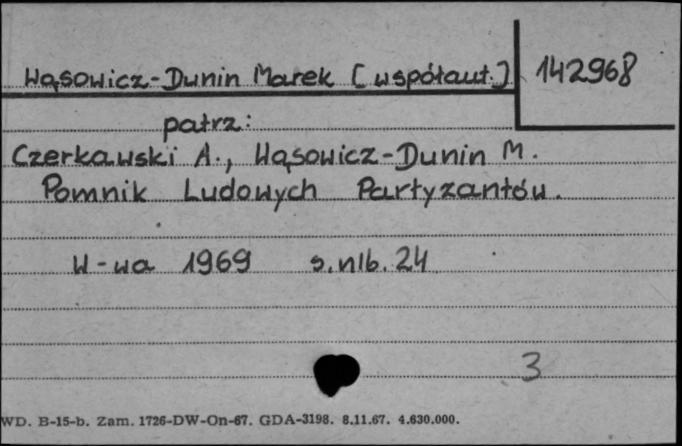 Wąsowicz-Dunin Marek [współaut.]
142968
patrz:
Czerkawski A., Wąsowicz-Dunin M.
Pomnik Ludowych Partyzantów.
W-wa 1969 s.nlb.24
3
WD. B-15-b. Zam. 1726-DW-On-67. GDA-3198. 8.11.67. 4.630.000.